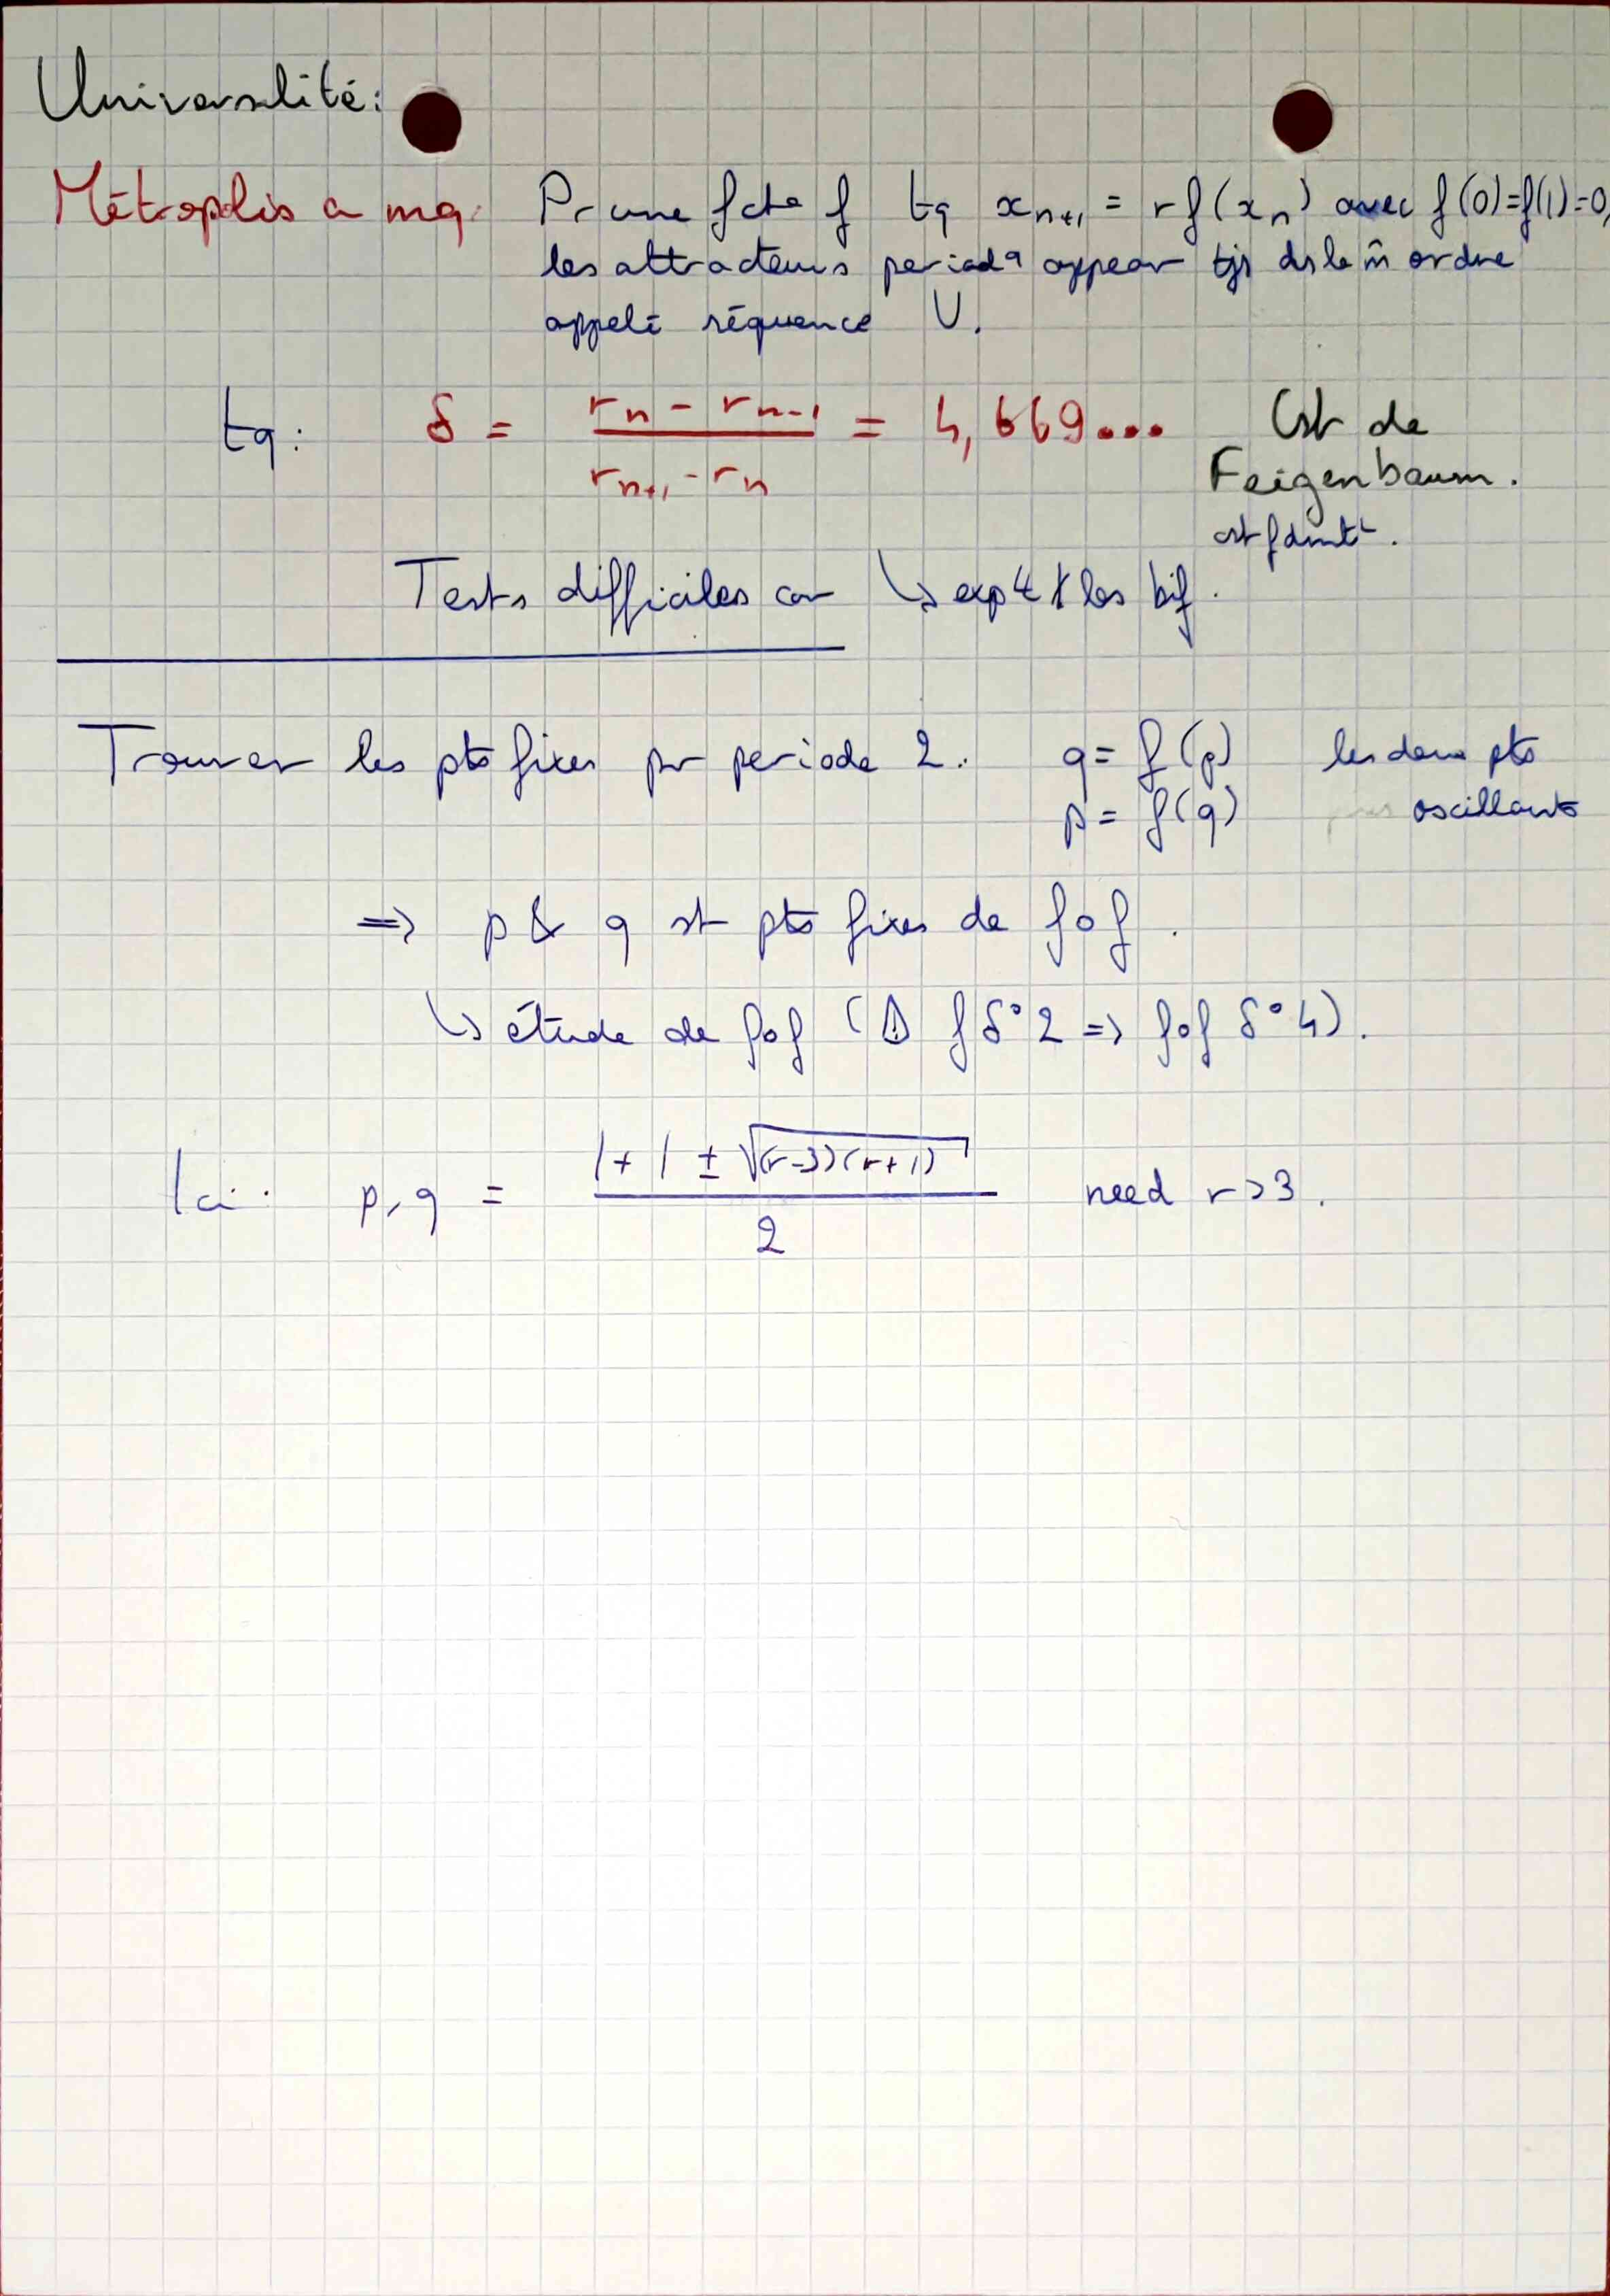 Universalité:
Métropolis a mq: Pr une fcte f tq xₙ₊₁ = r f(xₙ) avec f(0)=f(1)=0,
les attracteurs periodq appear tjs ds le m̂ ordre
appelé séquence U.
tq: δ = (rₙ - rₙ₋₁) / (rₙ₊₁ - rₙ) = 4,669... Cst de
Feigenbaum.
Tests difficiles car ↳ exp les bif.
Trouver les pts fixes pr periode 2. q = f(p) les deux pts
p = f(q) oscillants
=> p & q st pts fixes de f∘f.
↳ étude de f∘f (⚠ f δ°2 => f∘f δ°4).
Ici: p,q = (1 + 1 ± √((r-3)(r+1))) / 2 need r>3.